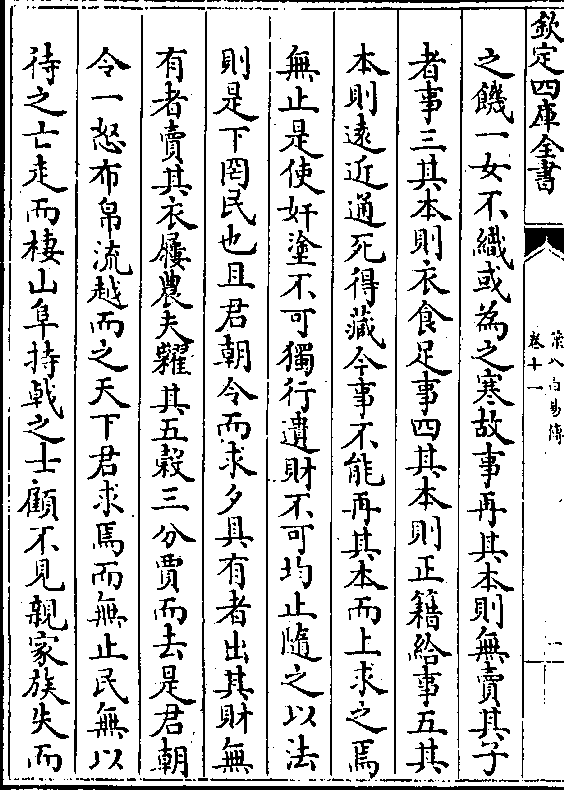 欽定四庫全書
卷十一
之饑一女不織或為之寒故事再其本則無賣其子
者事三其本則衣食足事四其本則正籍給事五其
本則遠近通死得藏今事不能再其本而上求之焉
無止是使奸塗不可獨行遺財不可均止隨之以法
則是下罔民也且君朝令而求夕具有者出其財無
有者賣其衣屨農夫糶其五榖三分賈而去是君朝
令一怒布帛流越而之天下君求焉而無止民無以
待之亡走而棲山阜持㦸之士顧不見親家族失而